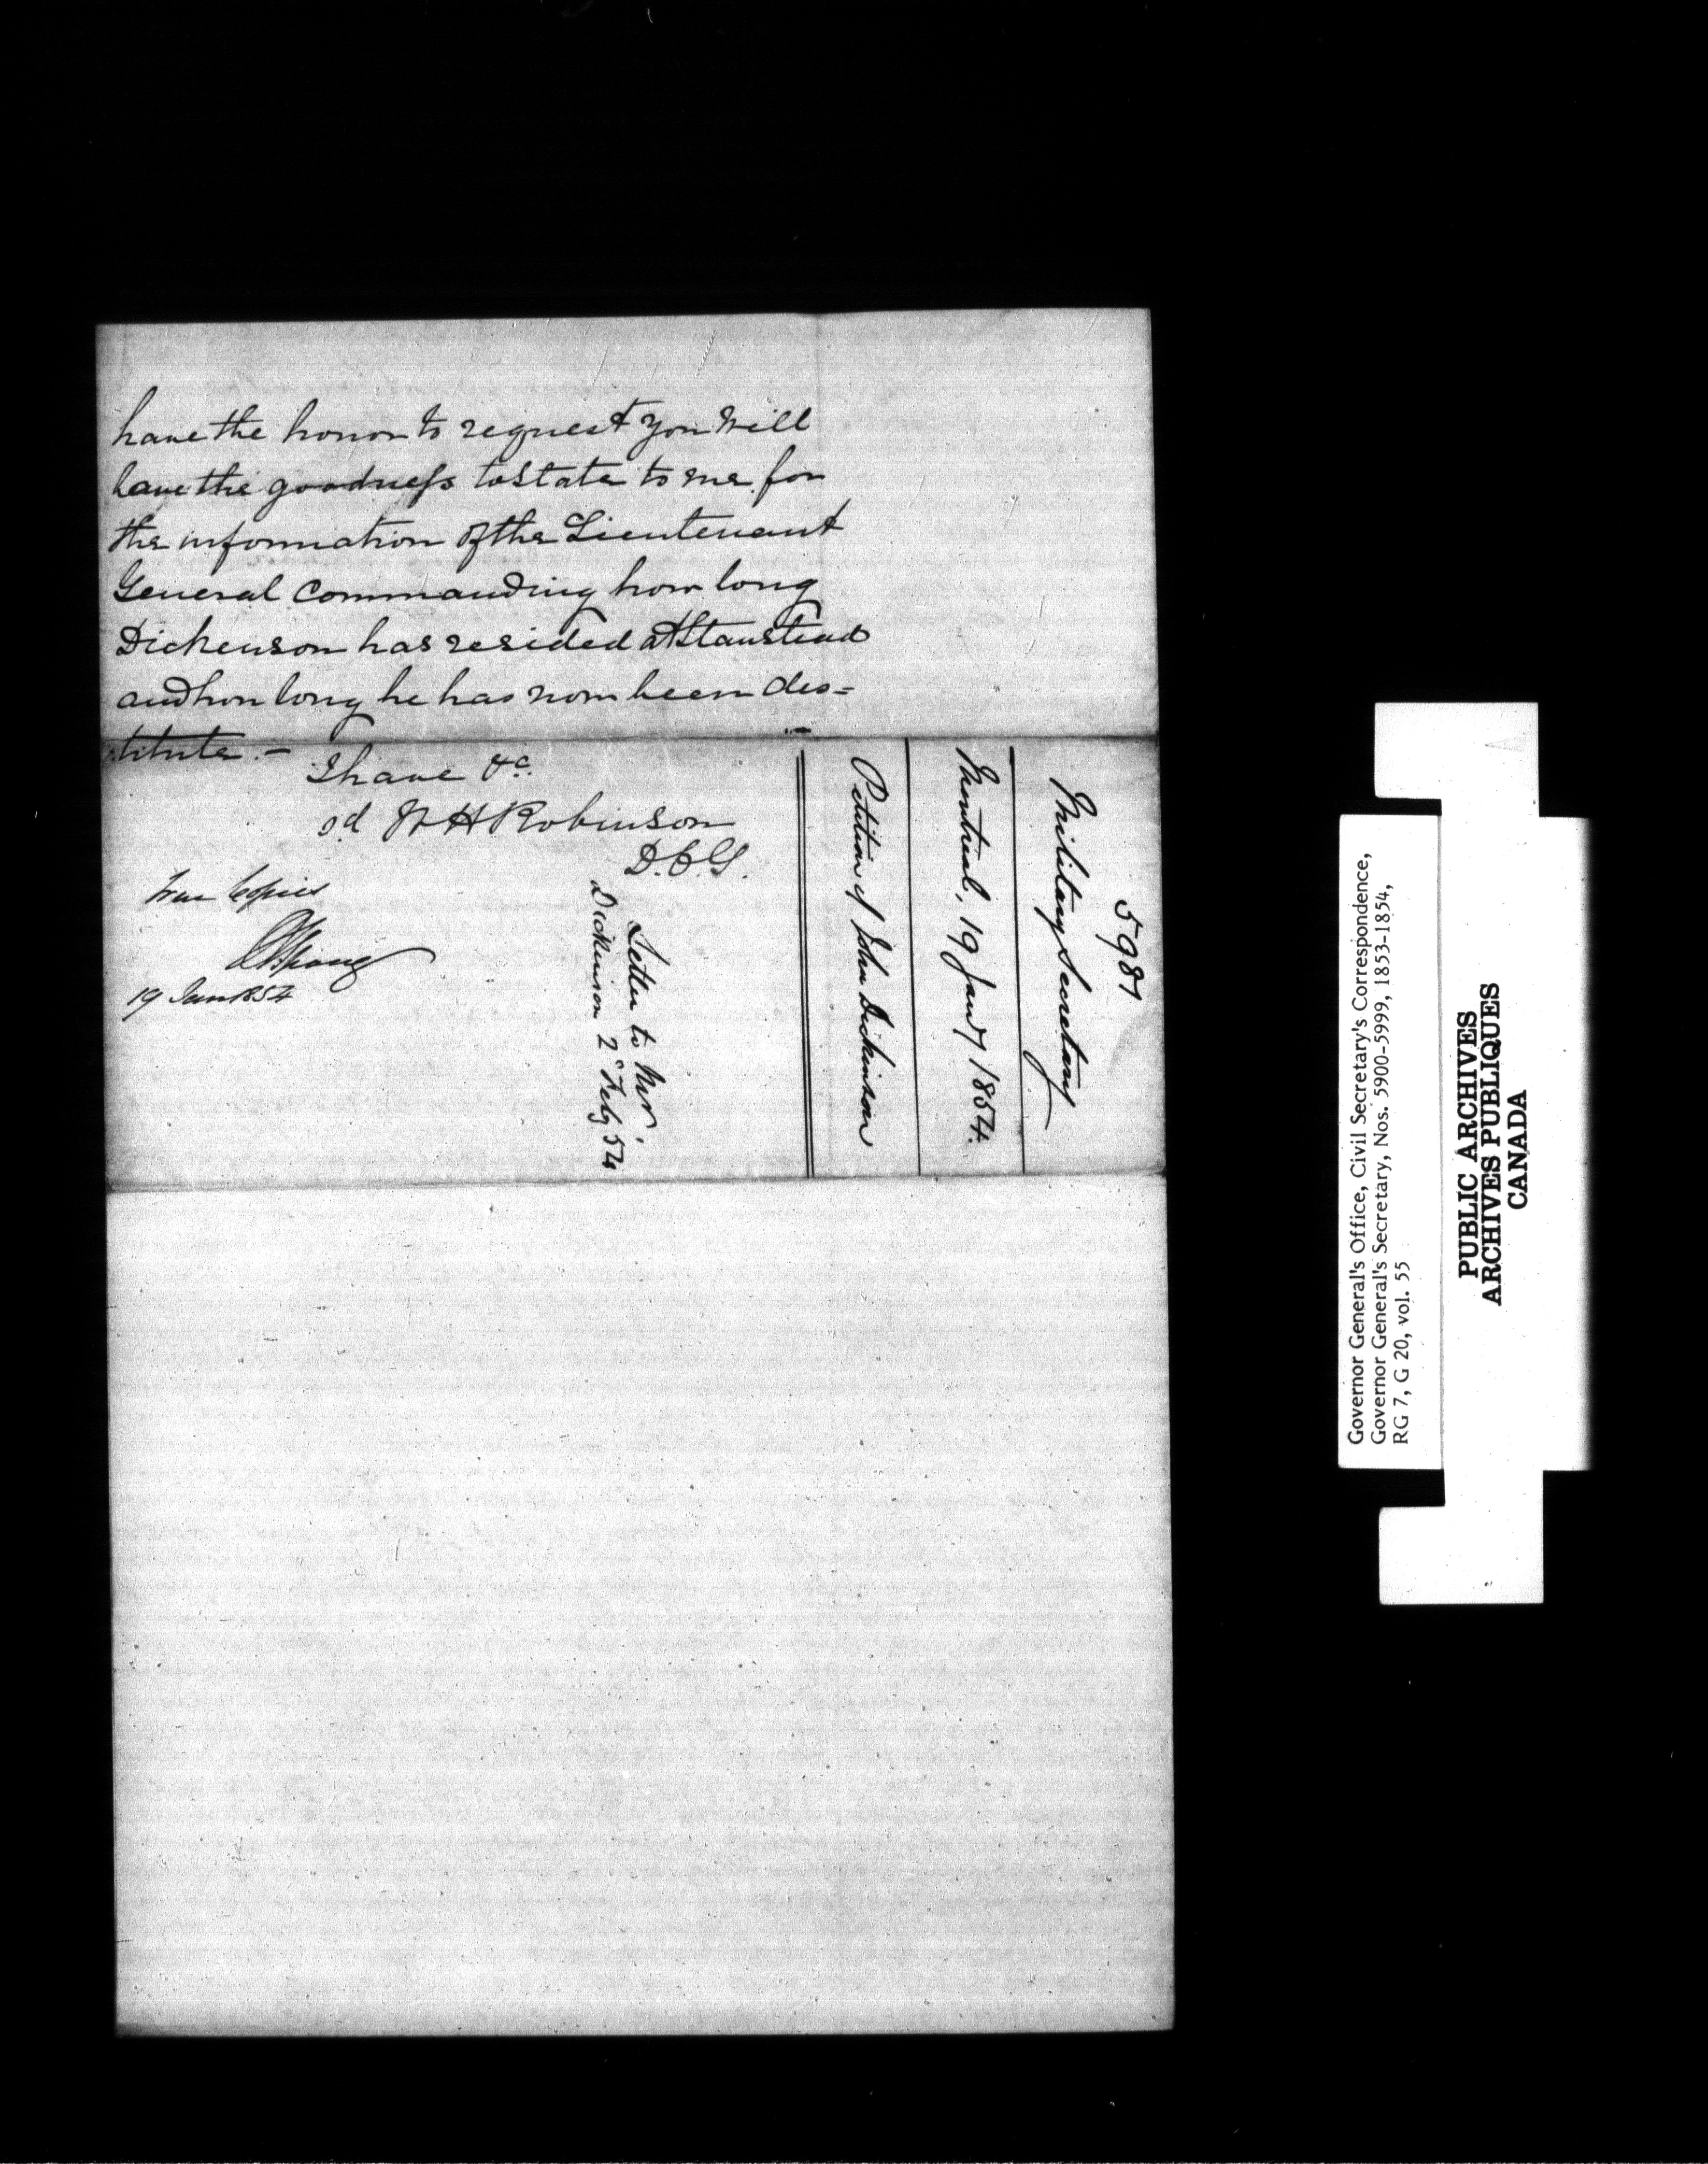 have the honor to request you will
have the goodness to state to me for
the information of the Lieutenant
General Commanding how long
Dickenson has resided at Stanstead
and how long he has now been des=
titute.-
I have &c.
sd W H Robinson
D.C.G.
True Copies
19 Jan 1854
Letter to Mr.
Dickinson 2d Feby 54
5981
Military Secretary
Montreal, 19 Jany 1854.
Petition of John Dickinson
Governor General's Office, Civil Secretary's Correspondence,
Governor General's Secretary, Nos. 5900-5999, 1853-1854,
RG 7, G 20, vol. 55
PUBLIC ARCHIVES
ARCHIVES PUBLIQUES
CANADA